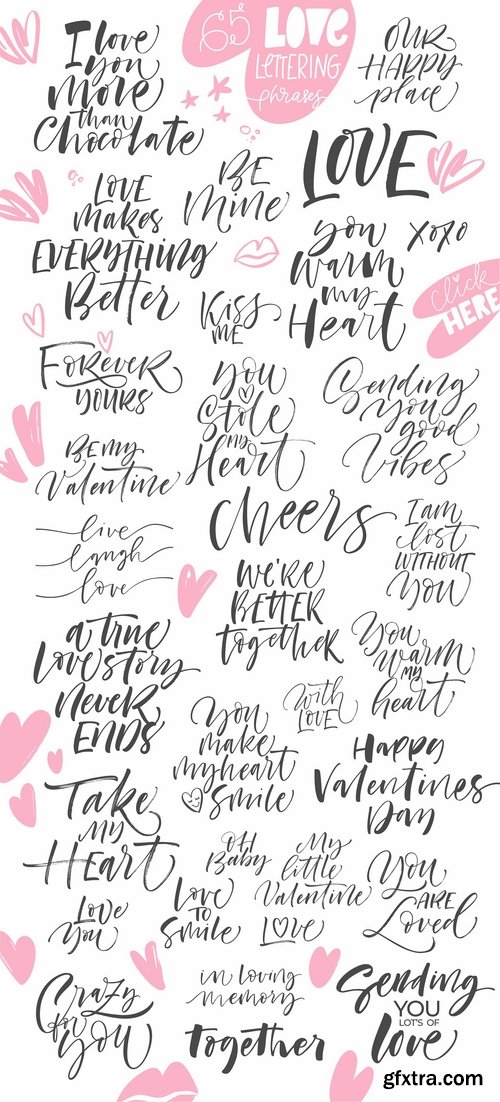 I love
you
more
than
Chocolate
65 LOVE
LETTERING
phrases
OUR
HAPPY
place
BE
Mine
LOVE
LOVE
makes
EVERYTHING
Better
you
warm
my
Heart
xoxo
Kiss
ME
click
HERE
FOREVER
YOURS
you
Stole
my
Heart
Sending
you
good
Vibes
Be my
Valentine
Cheers
I am
lost
WITHOUT
YOU
live
laugh
love
WE'RE
BETTER
together
a true
love story
never
ENDS
You
warm
my
heart
With
LOVE
You
make
my heart
smile
Happy
Valentines
Day
Take
my
HEART
OH
Baby
My
little
Valentine
You
ARE
Loved
Love
You
Love
TO
Smile
LOVE
Crazy
for
you
in loving
memory
Sending
YOU
LOT'S OF
love
together
gfxtra.com